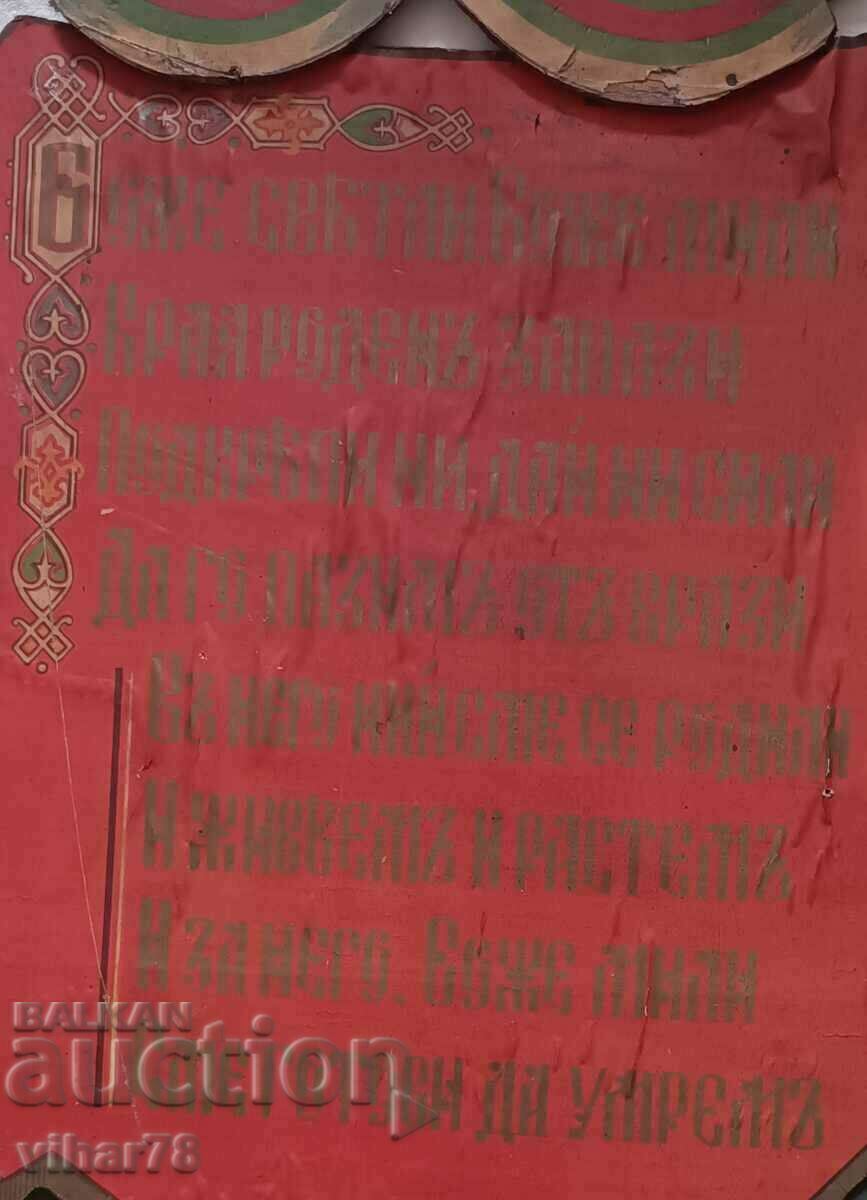 Боже свѣтли, Боже мили
Края роденъ запази
Подкрѣпи ни, дай ни сили
Да го пазимъ отъ врази
Въ него ний сме се родили
И живѣемъ и растемъ
И за него, Боже мили
Сме готови да умремъ
BALKAN
auction
vihar78